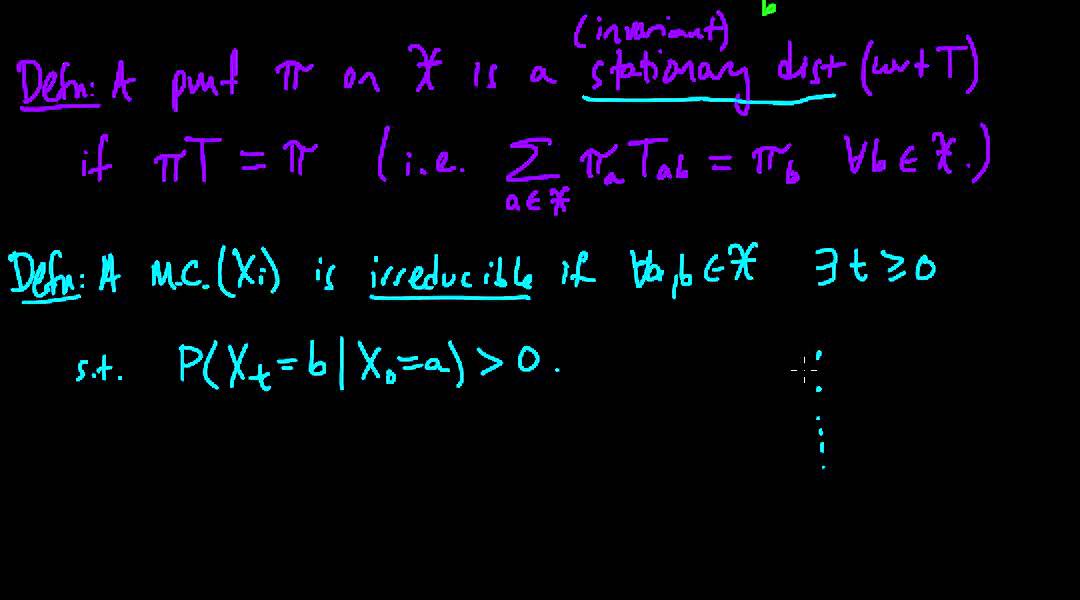 (invariant)
Defn: A pmf π on 𝒳 is a stationary dist (wrt T)
if πT = π (i.e. ∑_{a∈𝒳} π_a T_{ab} = π_b ∀b ∈ 𝒳.)
Defn: A M.C. (X_i) is irreducible if ∀a,b ∈ 𝒳 ∃ t ≥ 0
s.t. P(X_t = b | X_0 = a) > 0.